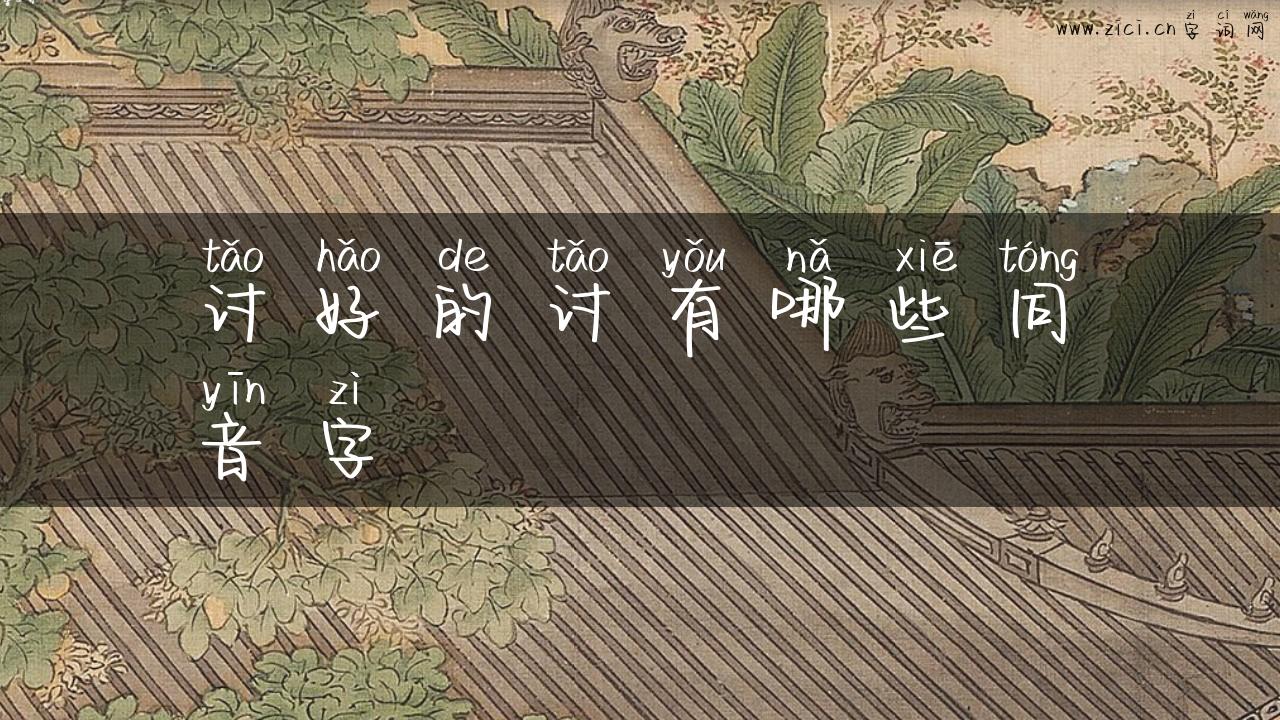 zì cí wǎng
www.zici.cn 字词网
tǎo hǎo de tǎo yǒu nǎ xiē tóng
讨好的讨有哪些同
yīn zì
音字